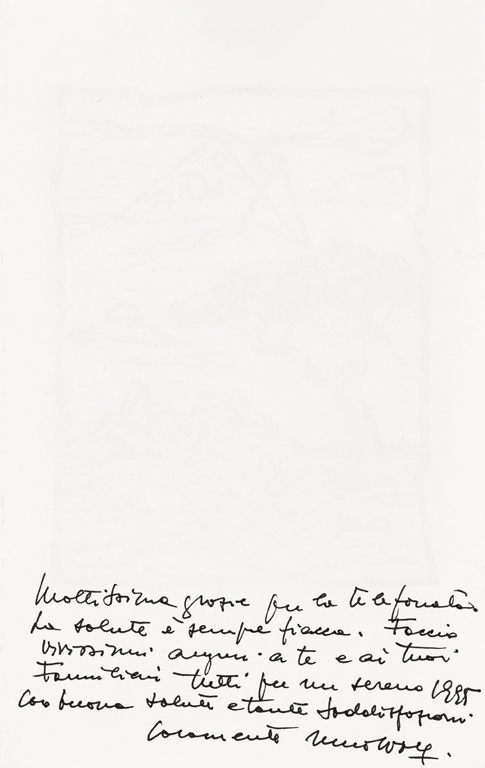 Moltissime grazie per la telefonata.
La salute è sempre fiacca. Faccio
vivissimi auguri a te e ai tuoi
Familiari tutti per un sereno 1995
con buona salute e tante soddisfazioni.
Caramente